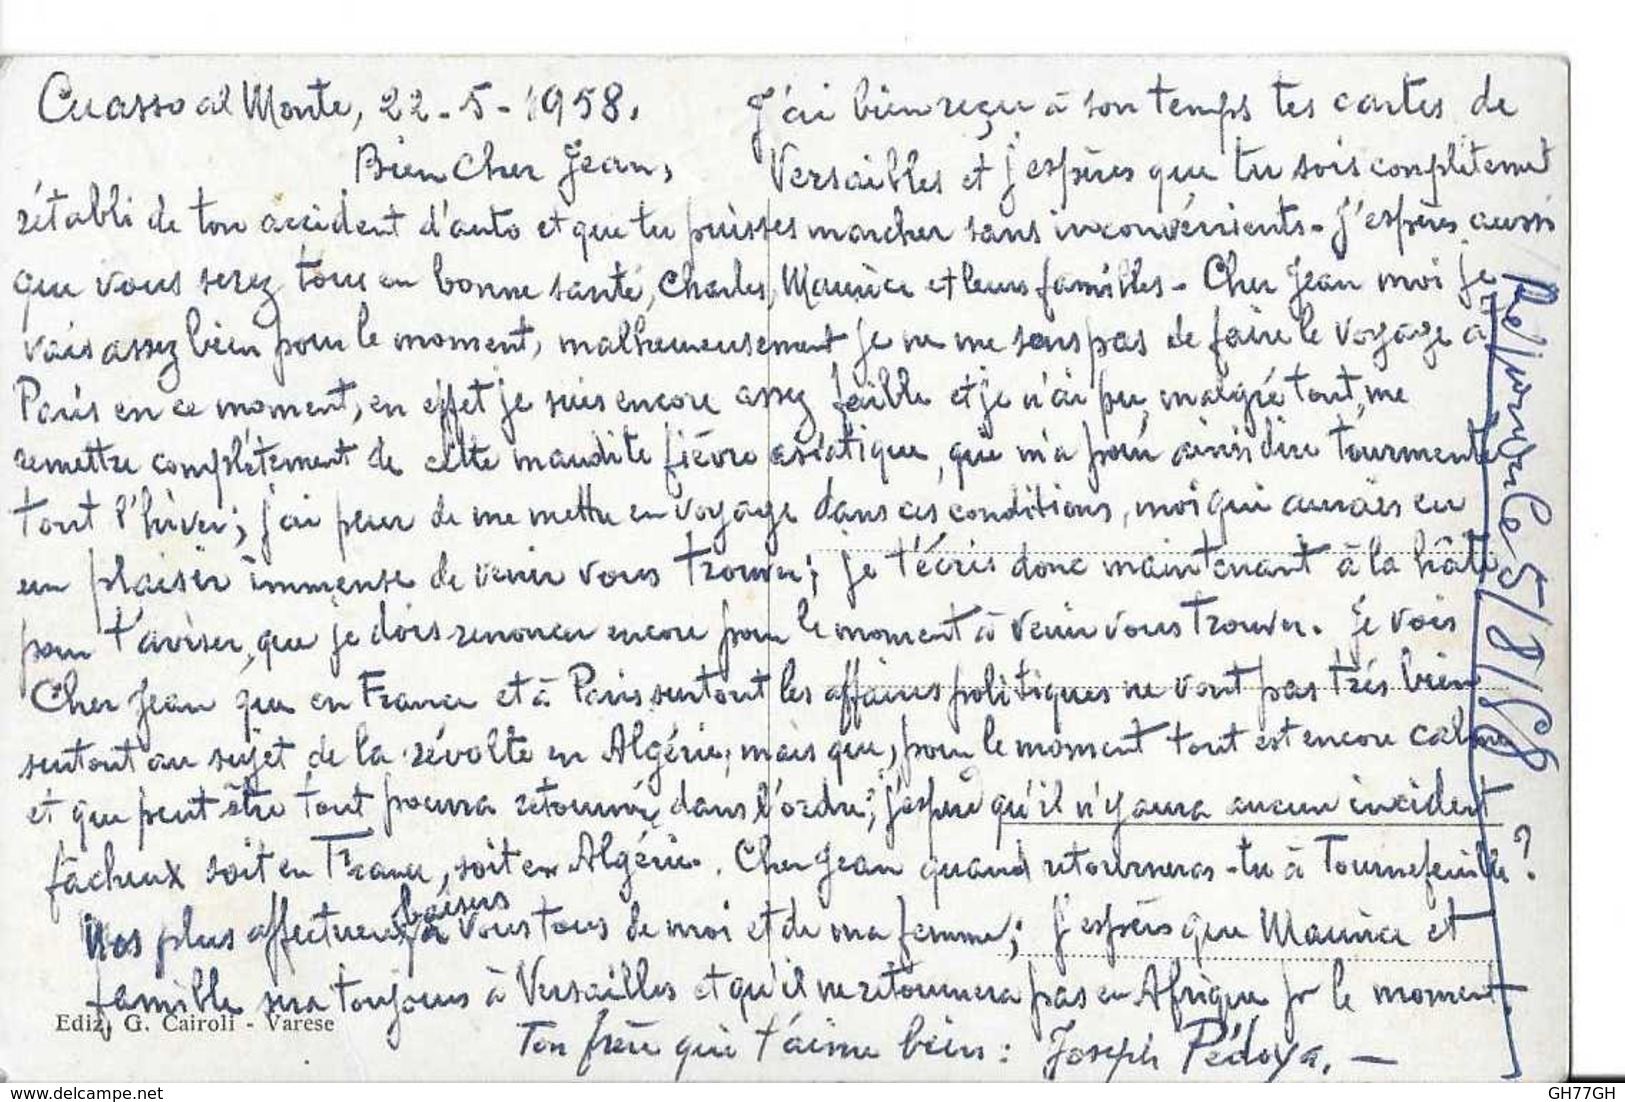 Cuasso al Monte, 22-5-1958. J'ai bien reçu à son temps tes cartes de
Bien Cher Jean, Versailles et j'espères que tu sois complètement
rétabli de ton accident d'auto et que tu puisses marcher sans inconvénients. J'espères aussi
que vous serez tous en bonne santé, Charles, Maurice et leurs familles. Cher Jean moi je
vais assez bien pour le moment, malheureusement je ne me sens pas de faire le voyage à
Paris en ce moment, en effet je suis encore assez faible et je n'ai pu, malgré tout, me
remettre complètement de cette maudite fièvre asiatique, que m'a pour ainsi dire tourmenté
tout l'hiver; j'ai peur de me mettre en voyage dans ces conditions, moi qui aurais eu
un plaisir immense de venir vous trouver; je t'écris donc maintenant à la hâte
pour t'aviser, que je dois renoncer encore pour le moment à venir vous trouver. Je vois
Cher Jean que en France et à Paris surtout les affaires politiques ne vont pas très bien
surtout au sujet de la révolte en Algérie, mais que, pour le moment tout est encore calme
et que peut être tout pourra retourner dans l'ordre; j'espère qu'il n'y aura aucun incident
fâcheux soit en France, soit en Algérie. Cher Jean quand retourneras-tu à Tournefeuille?
Nos plus affectueux baisers à vous tous de moi et de ma femme; j'espères que Maurice et
famille sera toujours à Versailles et qu'il ne retournera pas en Afrique pr le moment.
Ton frère qui t'aime bien: Joseph Pédoya. —
Ediz. G. Cairoli - Varese
Répondu le 5/8/58
delcampe.net
GH77GH